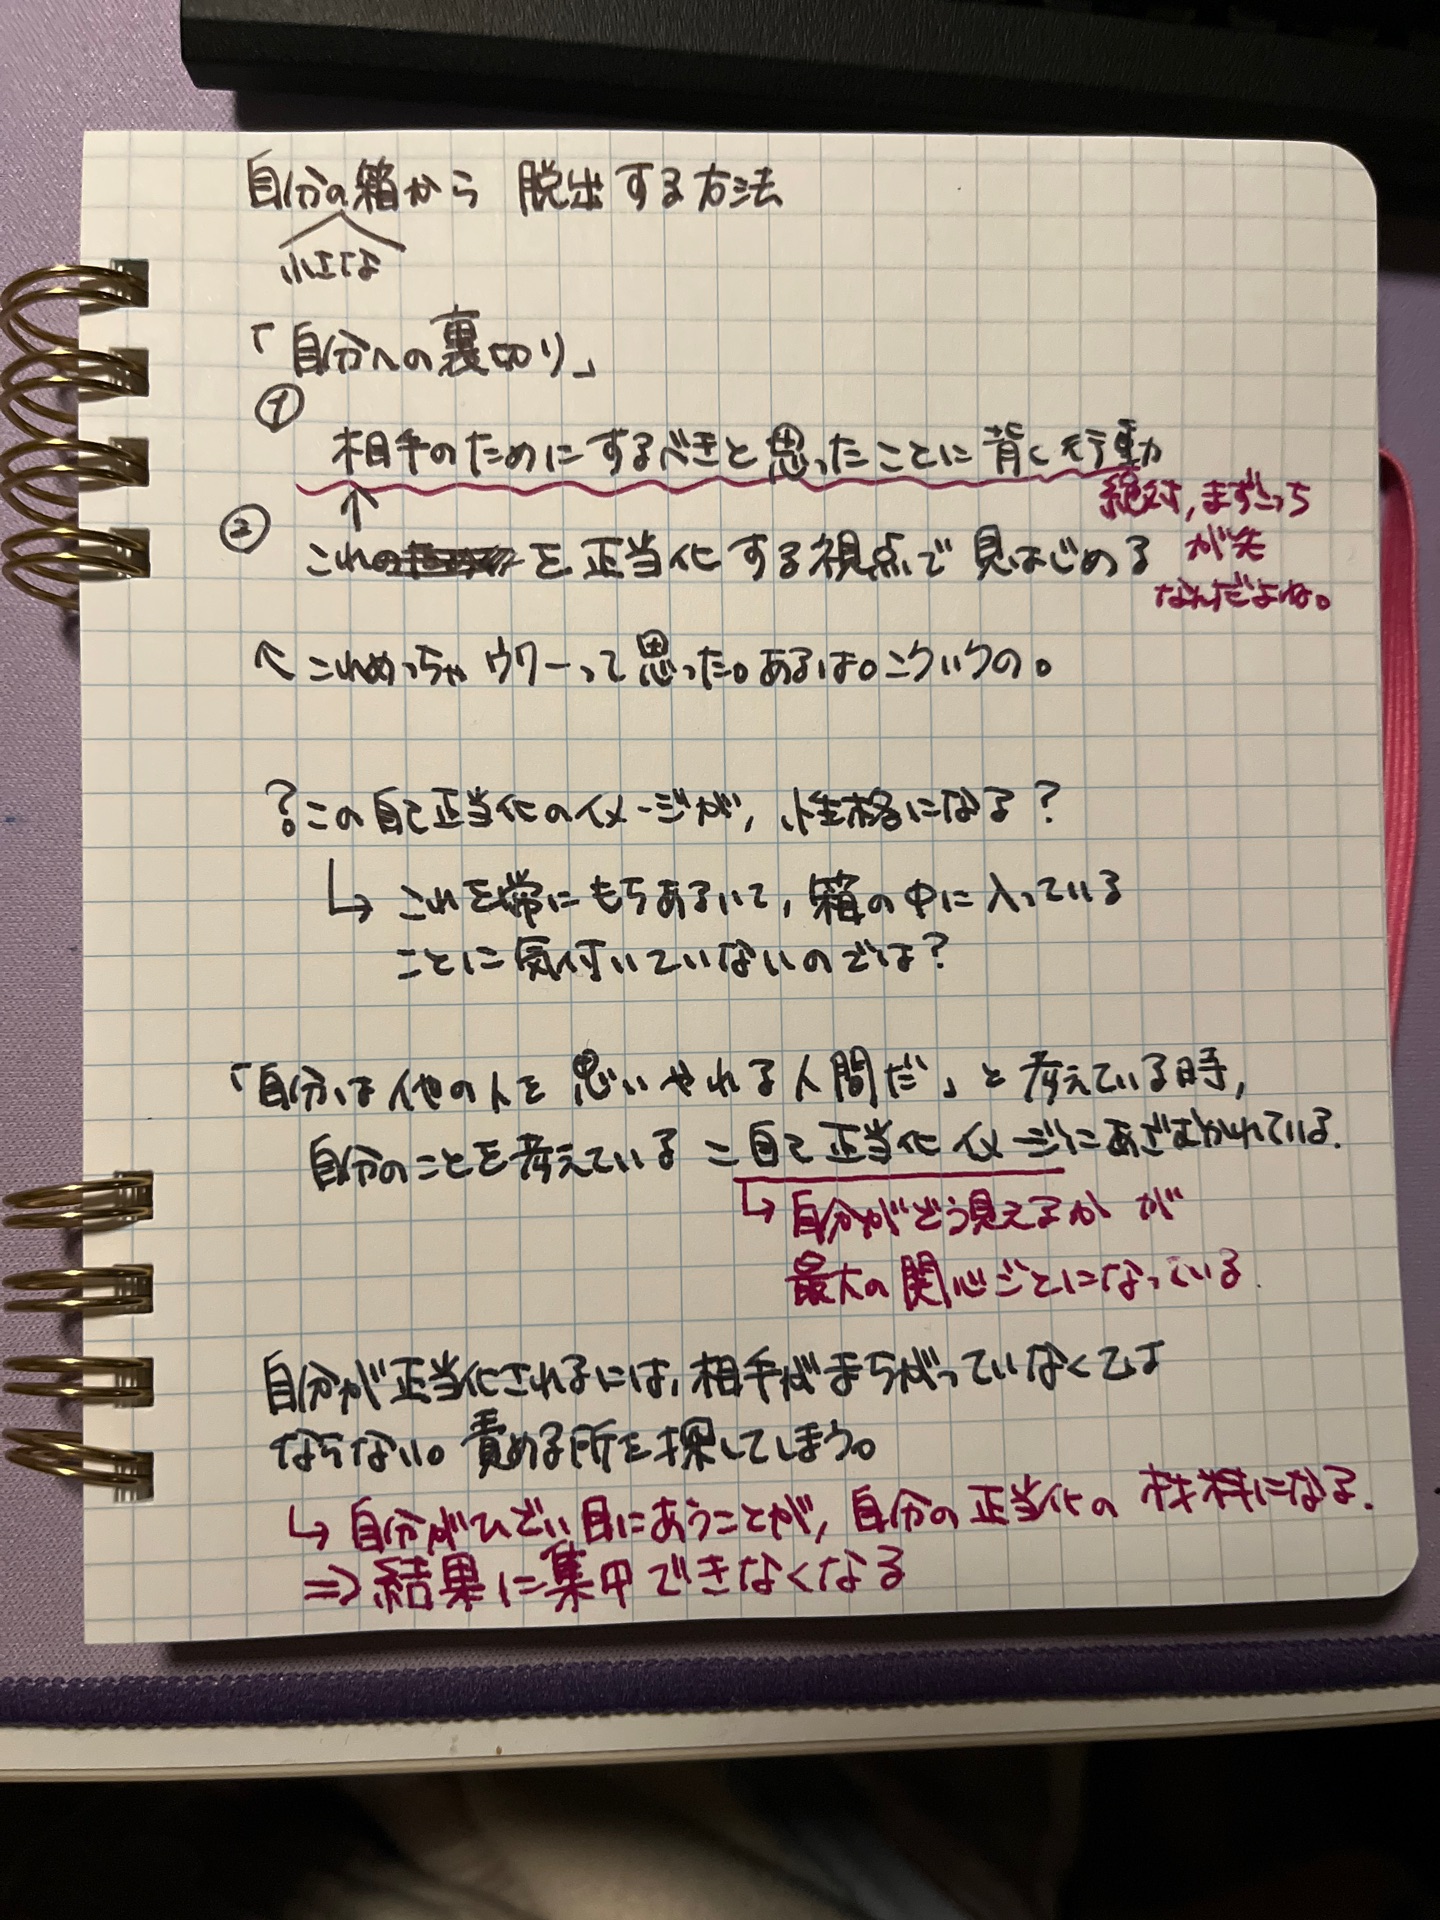 自分の箱から 脱出する方法
小さな
「自分への裏切り」
①
相手のためにするべきと思ったことに背く行動
絶対, まずこっち
が先
なんだよね。
②
これを正当化する視点で見はじめる
↖ これめっちゃウワーって思った。あるは。こういうの。
? この自己正当化のイメージが, 性格になる?
↳ これを常にもちあるいて, 箱の中に入っている
ことに気付いていないのでは?
「自分は他の人を思いやれる人間だ」と考えている時,
自分のことを考えている = 自己正当化イメージにあざむかれている.
↳ 自分がどう見えるか が
最大の関心ごとになっている.
自分が正当化されるには, 相手がまちがっていなくては
ならない。責める所を探してしまう。
↳ 自分がひどい目にあうことが, 自分の正当化の材料になる.
⇒ 結果に集中できなくなる